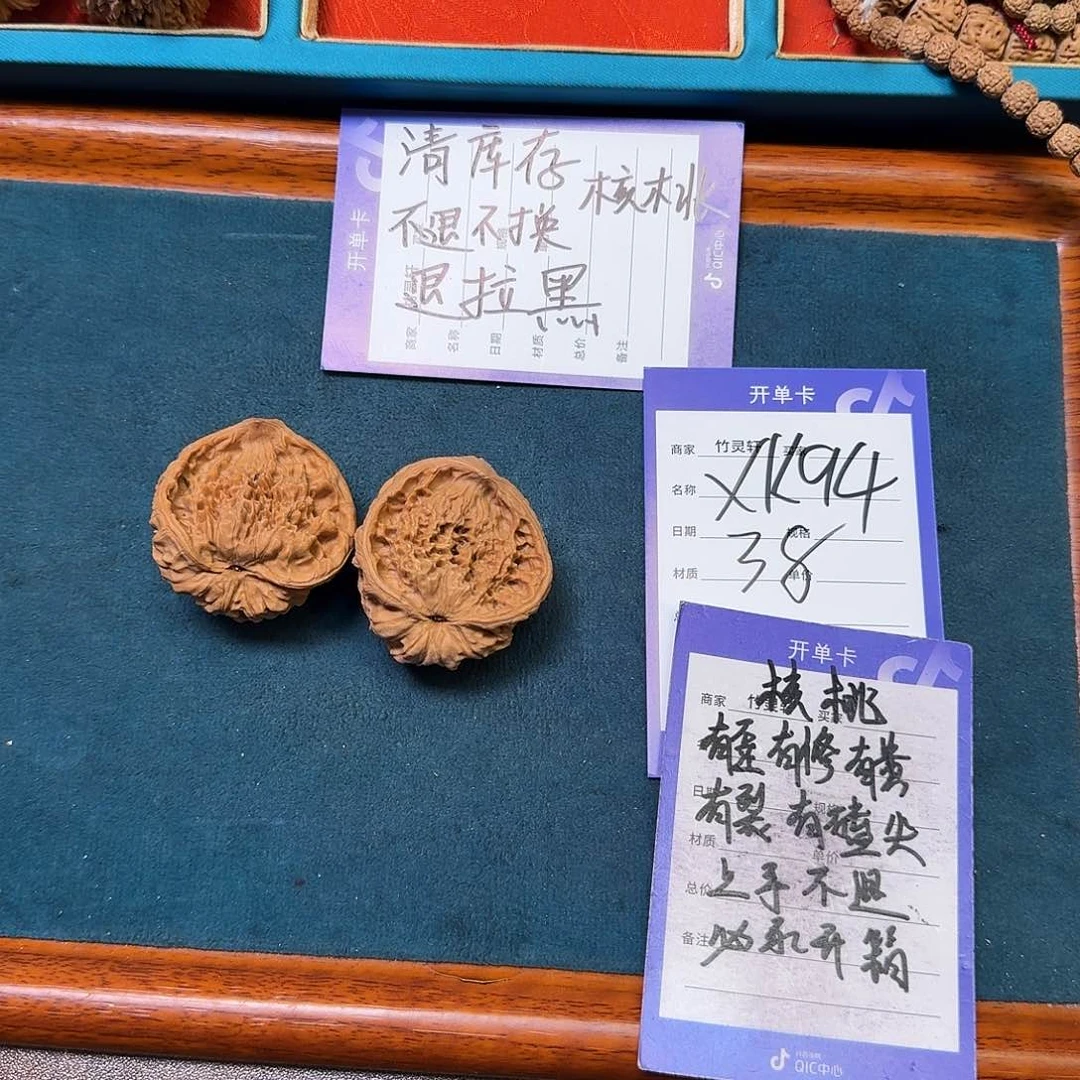 清库存
核桃
不退不换
退拉黑
开单卡
商家
名称
日期
材质
总价
备注
QIC中心
开单卡
商家 竹灵轩
名称 XK94
日期 38 规格
材质 单价
开单卡
商家 核桃 买家
有歪有修有黄
有裂有磕尖
规格
材质
单价
总价 上手不退
备注 必录开箱
QIC中心